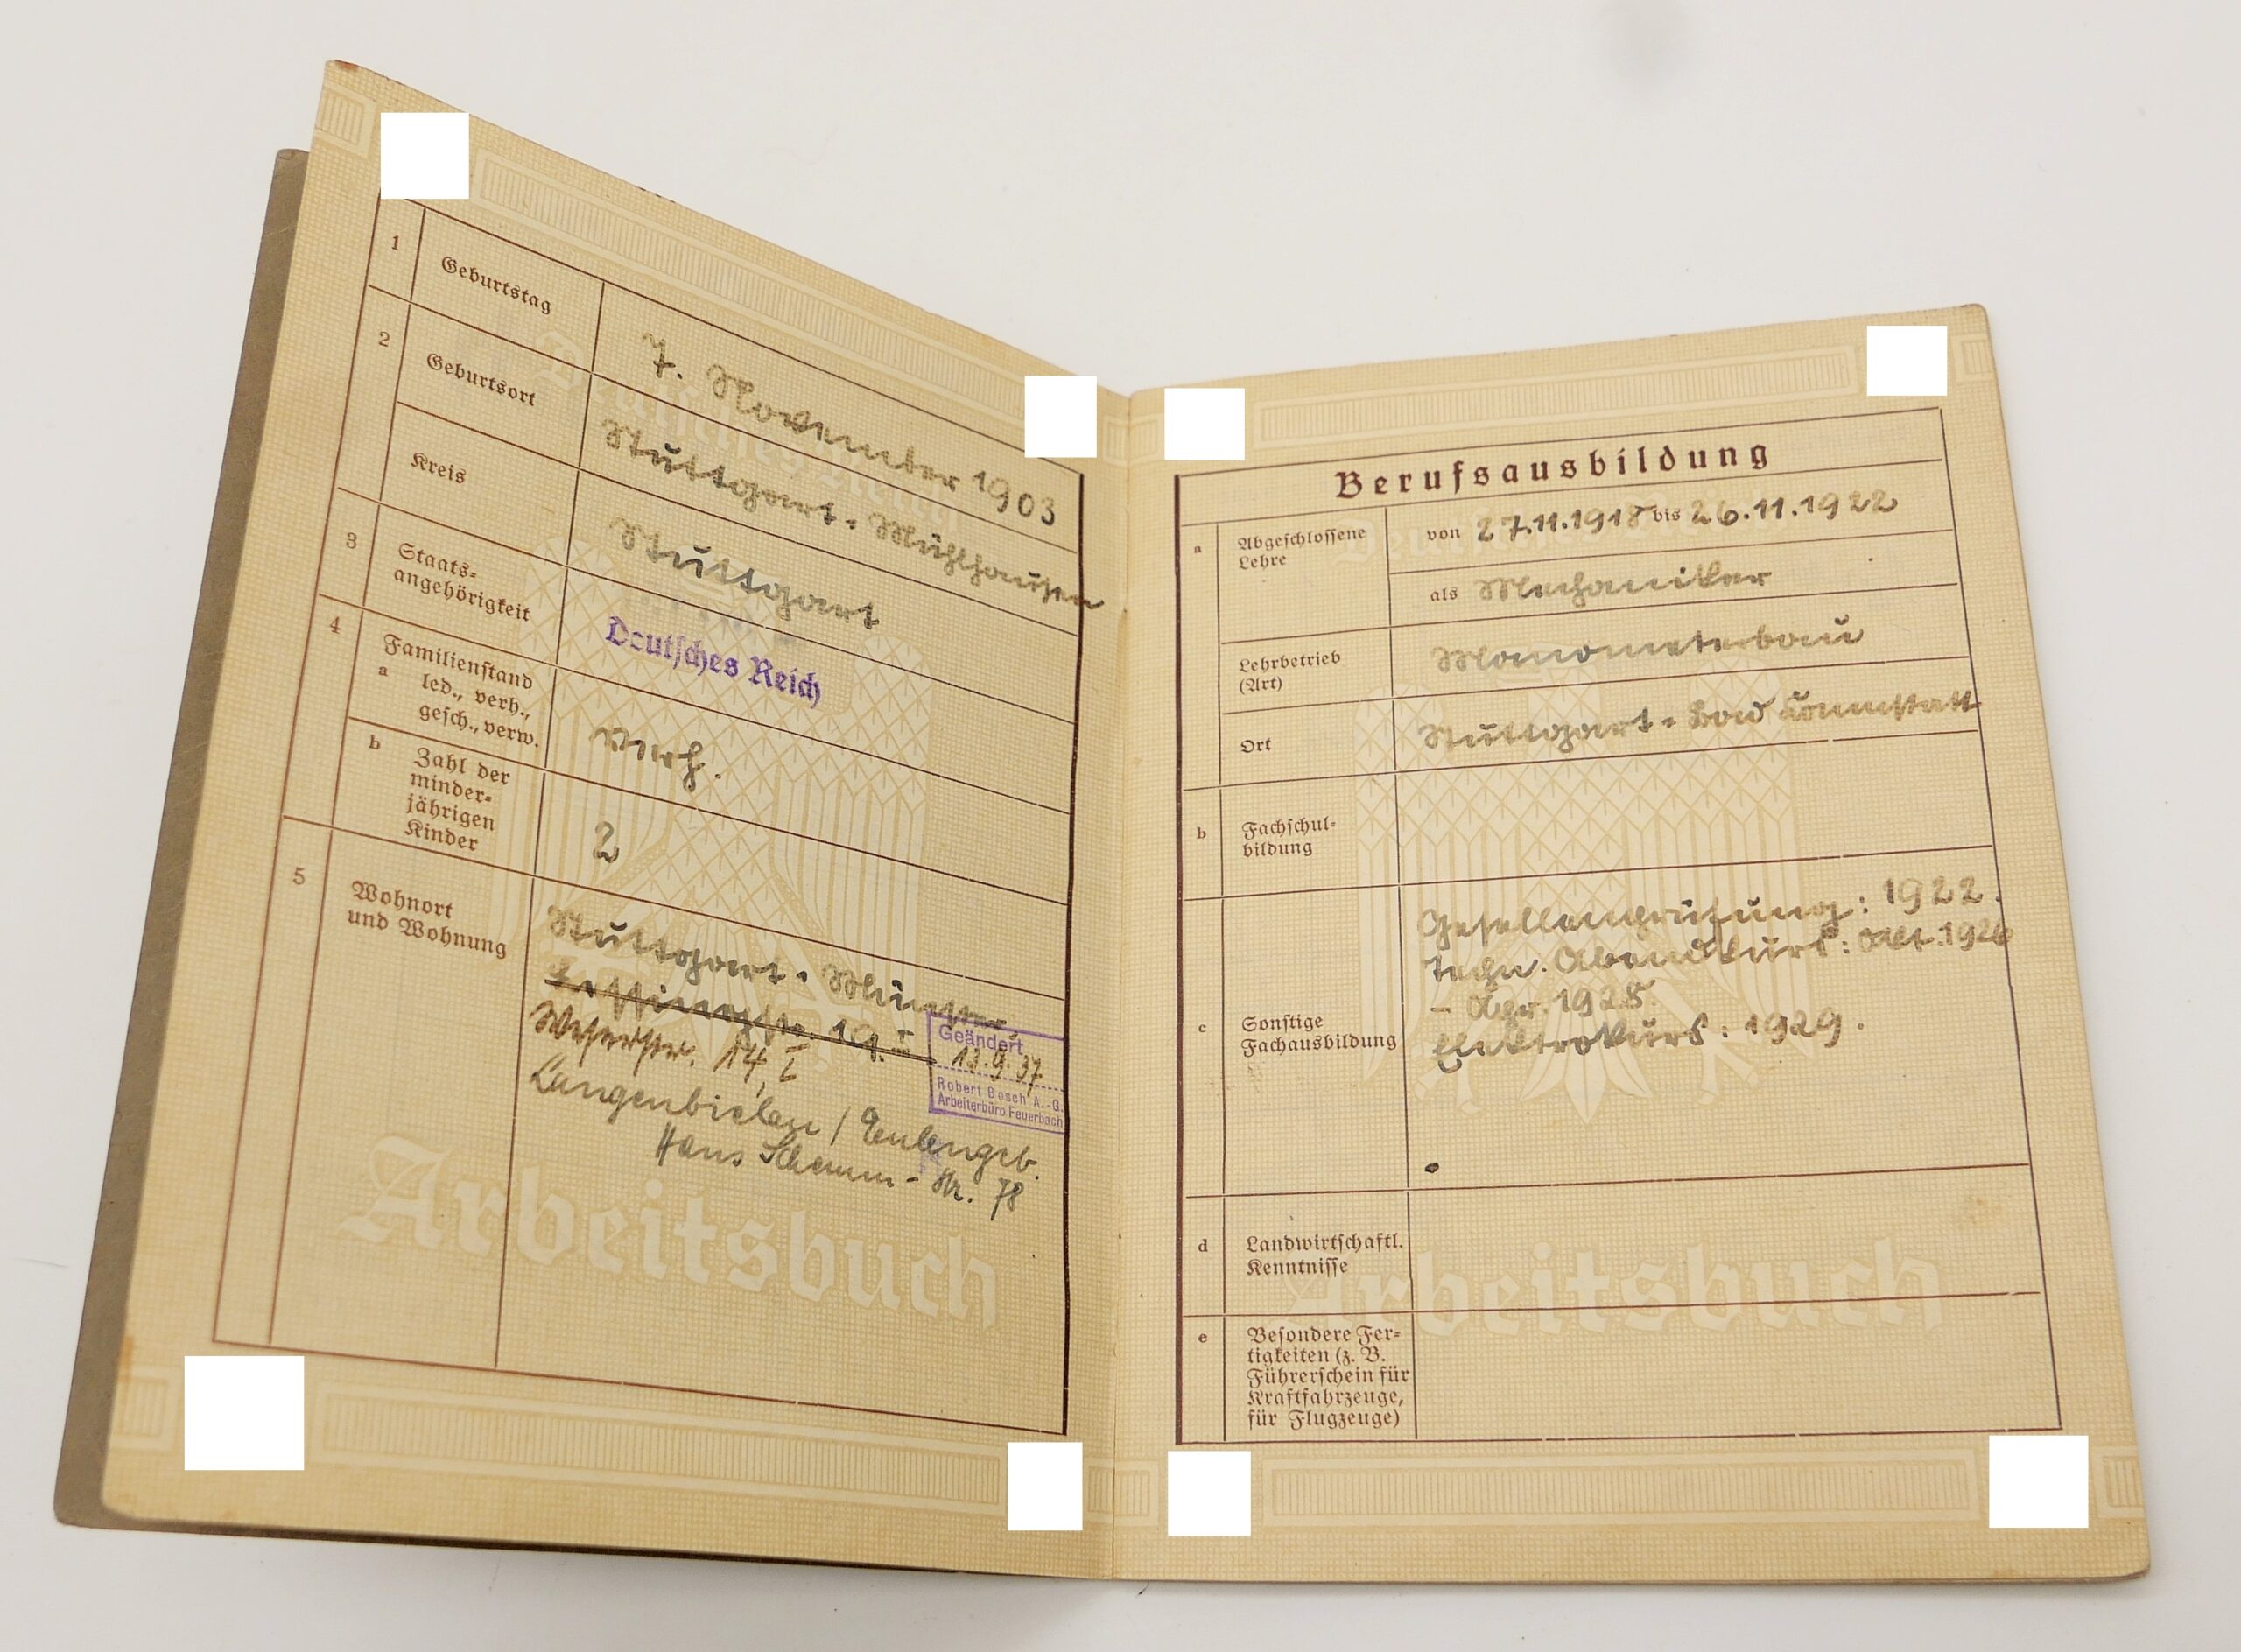 1
Geburtstag
7. November 1903
2
Geburtsort
Stuttgart-Mühlhausen
Kreis
Stuttgart
3
Staats-
angehörigkeit
Deutsches Reich
4
Familienstand
a led., verh.,
gesch., verw.
verh.
b Zahl der
minder-
jährigen
Kinder
2
5
Wohnort
und Wohnung
Stuttgart-Münster
19. I
Weserstr. 14, I
Geändert
13.9.37
Robert Bosch A.-G.
Arbeiterbüro Feuerbach
Langenbielau / Eulengeb.
Hans Schemm-Str. 78
Arbeitsbuch
Berufsausbildung
a
Abgeschlossene
Lehre
von 27.11.1918 bis 26.11.1922
als Mechaniker
Lehrbetrieb
(Art)
Manometerbau
Ort
Stuttgart-Bad Cannstatt
b
Fachschul-
bildung
c
Sonstige
Fachausbildung
Gesellenprüfung: 1922.
Techn. Abendkurs: Okt. 1926
- Apr. 1928.
Elektrokurs: 1929.
d
Landwirtschaftl.
Kenntnisse
e
Besondere Fer-
tigkeiten (z. B.
Führerschein für
Kraftfahrzeuge,
für Flugzeuge)
Arbeitsbuch